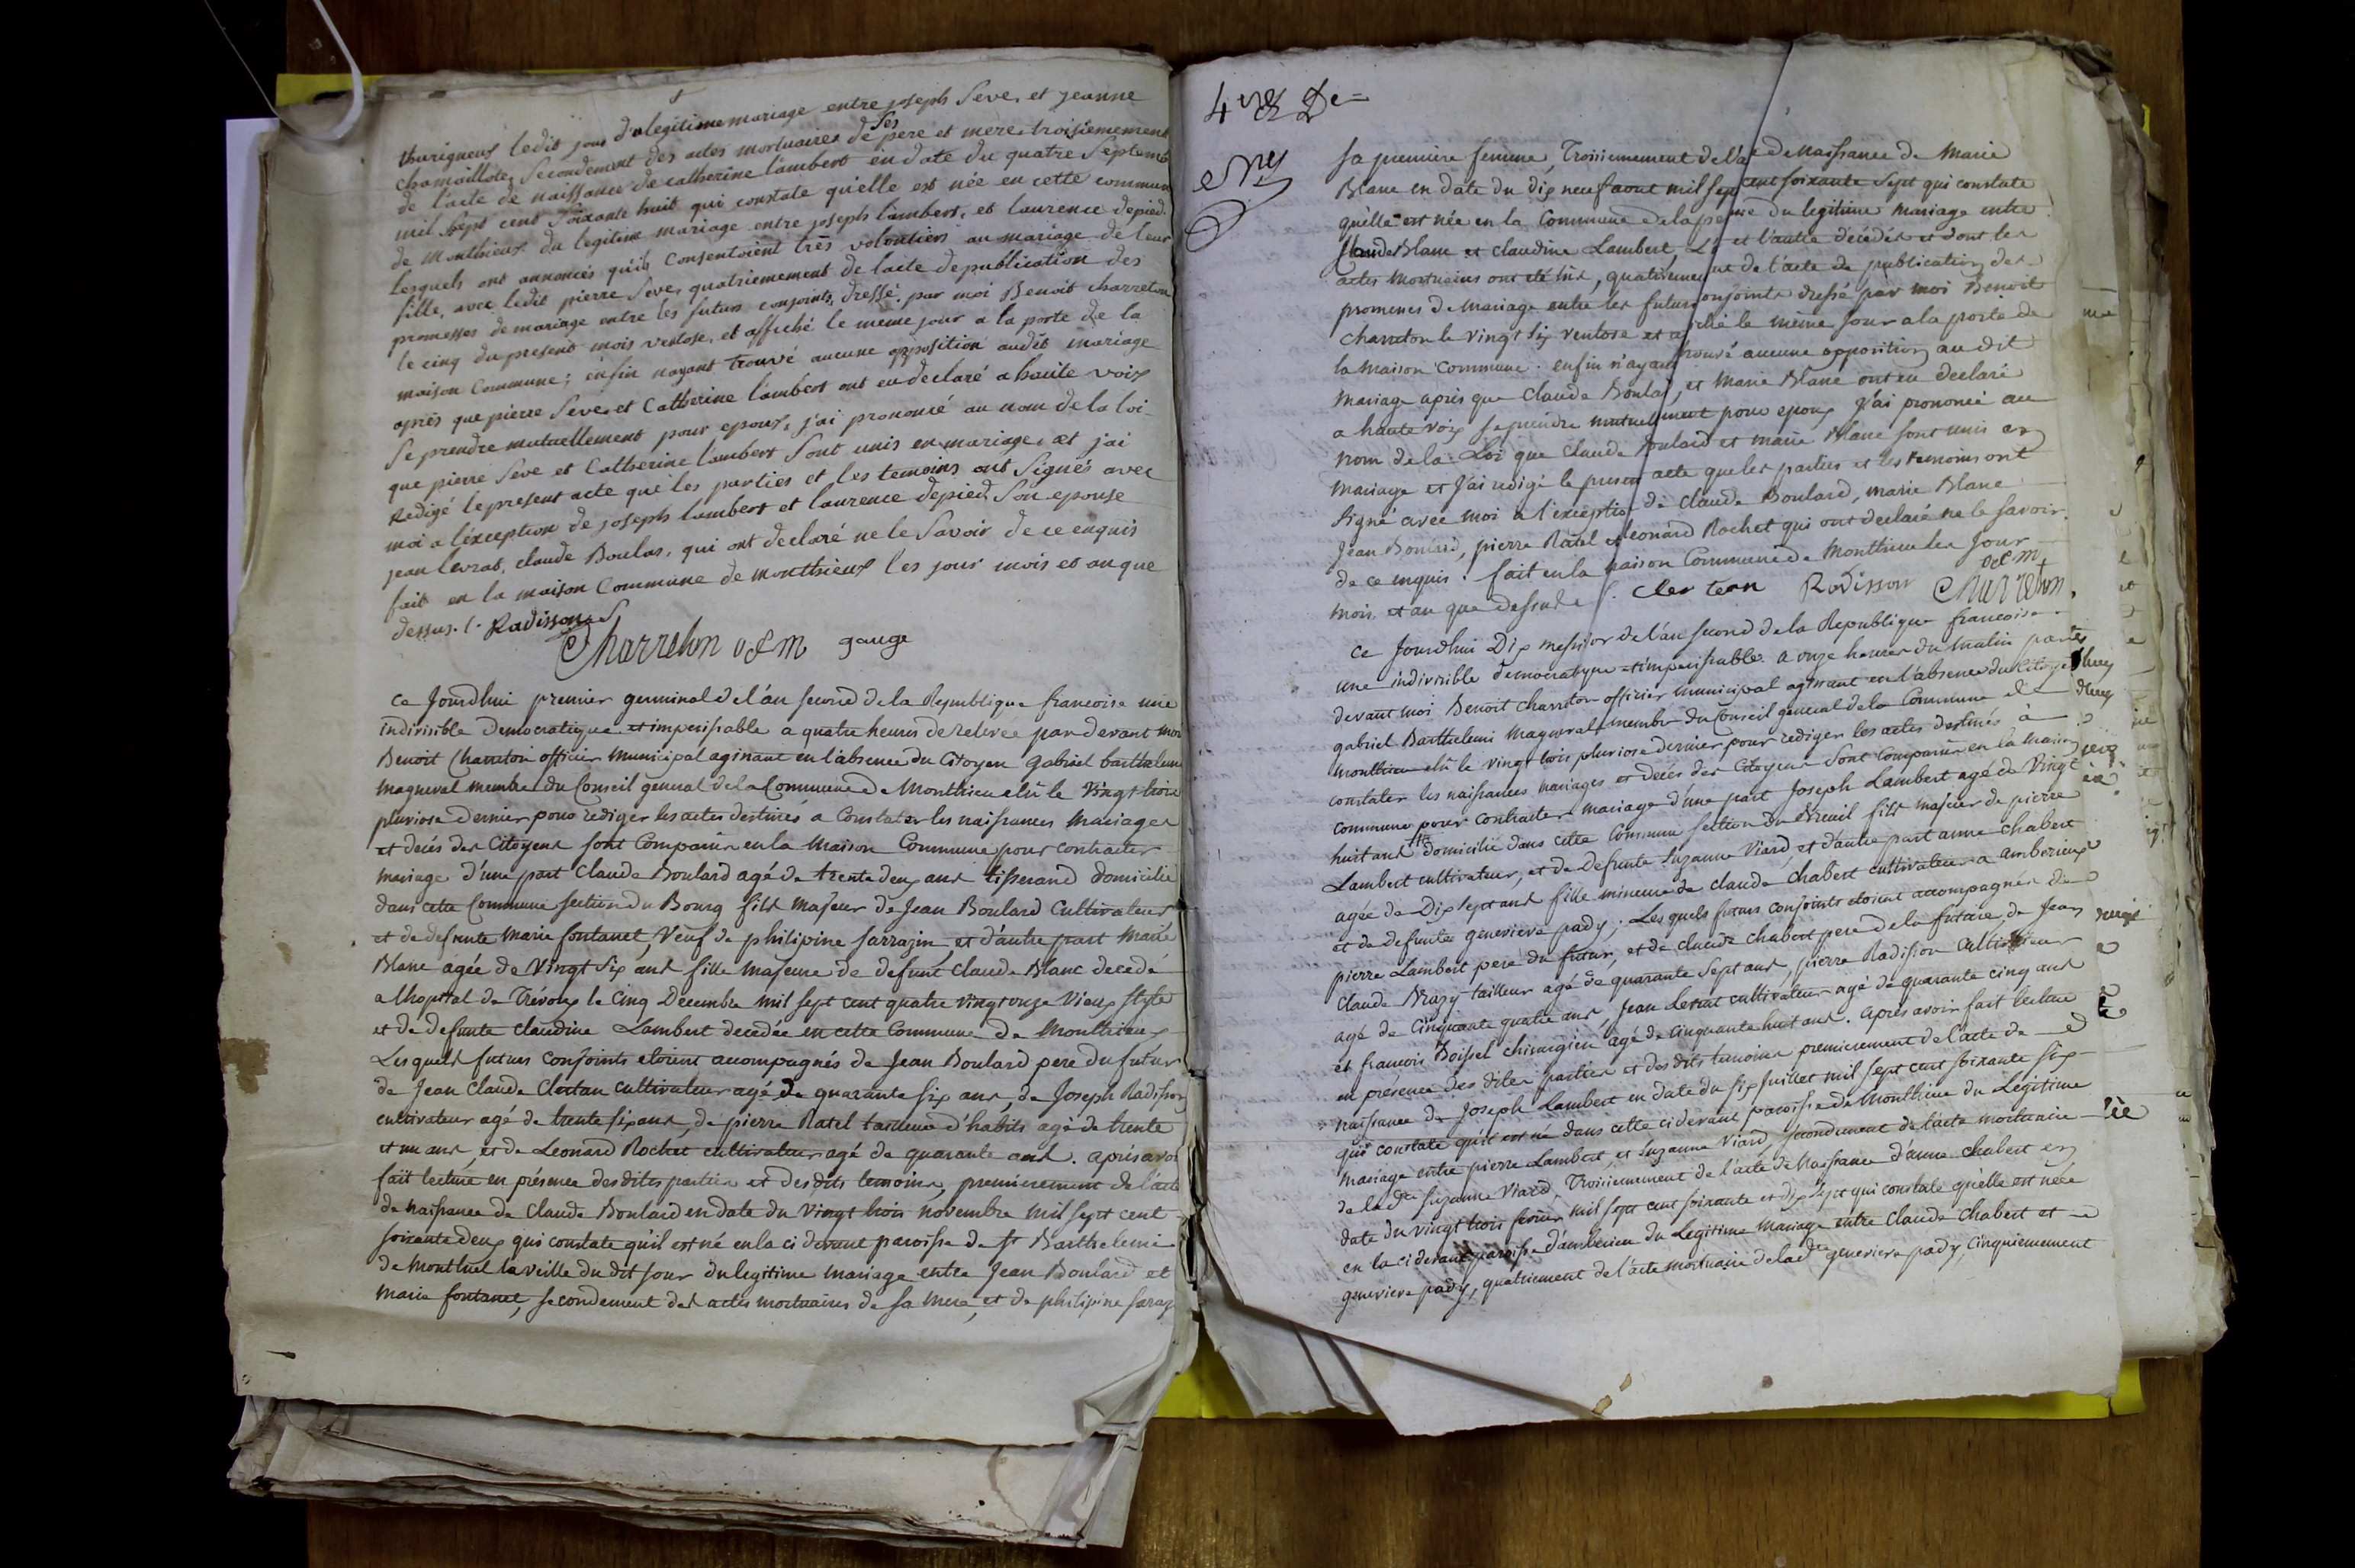 thurigneux ledit jour d'u legitime mariage entre joseph Seve, et jeanne
chamaillote, Secondement des actes mortuaires de ses pere et mere, troisiemement
de l'acte de naissance de catherine lambert en date du quatre Septemb
mil Sept cent Soixante huit qui constate qu'elle est née en cette commun
de Monthieux du legitime mariage entre joseph lambert, et laurence depied.
Lesquels ont annoncés qu'ils consentoient très volontiers au mariage de leur
fille, avec ledit pierre Seve, quatriemement de l'acte de publication des
promesses de mariage entre les futurs conjoints, dressé par moi Benoit charreton
le cinq du present mois ventose, et affiché le meme jour a la porte de la
maison Commune; enfin nayant trouvé aucune opposition audit mariage
après que pierre Seve et Catherine lambert ont eu declaré a haute voix
Se prendre mutuellement pour epoux, j'ai prononcé au nom de la loi
que pierre Seve et Catherine lambert Sont unis en mariage, et j'ai
Redigé le present acte que les parties et les temoins ont Signés avec
moi a l'éxception de joseph lambert et laurence depied Son epouse
jean levrat, claude Boulas, qui ont declaré ne le Savoir de ce enquis
fait en la maison Commune de monthieux les jour mois et an que
dessus. Radisson
Charreton o&m gauge
Ce Jourdhui premier germinal de l'an second de la Republique francoise une
indivisible Democratique et imperissable a quatre heures de relevée par devant moi
Benoit Charreton officier municipal agissant en l'absence du Citoyen Gabriel barthelem
magneval membre du Conseil general de la Commune de Monthieu elû le Vingt trois
pluviose dernier pour rediger les actes destinés a Constater les naissances Mariages
et décés des Citoyens sont Comparus en la Maison Commune pour contracter
mariage d'une part Claude Boulard agé de trente deux ans tisserand domicilié
dans cette Commune section du Bourg fils Majeur de Jean Boulard Cultivateur
et de defunte Marie fontanet, Veuf de philipine sarrazin et d'autre part Marie
Blanc agée de Vingt Six ans fille Majeure de defunt Claude Blanc decedé
a lhopital de Trévoux le Cinq Decembre mil sept cent quatre vingt onze Vieux Style
et de defunte Claudine Lambert decedée en cette Commune de Monthieux
Lesquels futurs conjoints etoient accompagnés de Jean Boulard pere du futur
de Jean Claude Clertan cultivateur agé de quarante six ans, de Joseph Radisson
cultivateur agé de trente six ans, de pierre Ratel tailleur d'habits agé de trente
et un ans, et de Leonard Rochet cultivateur agé de quarante ans. après avoi
fait lecture en présence des dites parties et des dits temoins, premierement de l'acte
de naissance de Claude Boulard en date du Vingt trois novembre mil sept cent
soixante deux qui constate qu'il est né en la ci devant paroisse de St Barthelemi
de Montluel la veille du dit jour du legitime mariage entre Jean Boulard et
Marie fontanet, secondement des actes mortuaires de sa mere, et de philipine saraz
sa premiere femme, Troisiemement de l'a e de Naissance de Marie
Blanc en date du dix neuf aout mil sep cent soixante Sept qui constate
qu'elle est née en la Commune du legitime mariage entre
Claude Blanc et claudine Lambert, L' et l'autre décédés et dont les
actes Mortuaires ont été lus, quatriememe nt de l'acte de publication des
promesses de Mariage entre les futurs onjoints dressé par moi Benoit
Charreton le vingt Six ventose et a fiché le même jour a la porte de
la Maison Commune. enfin n'ayant trouvé aucune opposition au dit
Mariage après que Claude Boulard, et Marie Blanc ont eu declaré
a haute voix se prendre mutuellement pour epoux J'ai prononcé au
nom de la Loi que Claude Boulard et marie Blanc sont unis en
Mariage et J'ai redigé le present acte que les parties et les temoins ont
signé avec moi a l'exception de Claude Boulard, marie Blanc
Jean Boulard, pierre Ratel et Leonard Rochet qui ont declaré ne le savoir.
de ce enquis. fait en la maison Commune de Monthieu les Jour
mois et an que dessus. Cler tean Radisson Charreton o&m
Ce Jourdhui Dix messidor de l'an second de la Republique francoise
une indivisible democratique et imperissable a onze heures du matin par
devant moi Benoit charreton officier municipal agissant en l'absence du Citoyen
gabriel Barthelemi Magneval membre du Conseil general de la Commune de
Monthieu elû le vingt trois pluviose dernier pour rediger les actes destinés à
constater les naissances mariages et décés des Citoyens sont Comparus en la Maison
commune pour contracter mariage d'une part Joseph Lambert agé de Vingt
huit ans domicilié dans cette Commune section du Breuil fils majeur de pierre
Lambert cultivateur, et de defunte Suzanne Viard, et d'autre part anne chabert
agée de Dix sept ans fille mineure de claude chabert cultivateur a amberieux
et de defunte genevieve pady; Les quels futurs conjoints etoient accompagnés de
pierre Lambert pere du futur, et de claude chabert pere de la future, de Jean
Claude Brazy tailleur agé de quarante Sept ans, pierre Radisson Cultivateur
agé de Cinquante quatre ans, Jean Levrat cultivateur agé de quarante cinq ans
et francois Boissel chirurgien agé de cinquante huit ans. après avoir fait lecture
en présence des dites parties et des dits temoins premierement de l'acte de
naissance de Joseph Lambert en date du six juillet mil sept cent soixante six
qui constate qu'il est né dans cette ci devant paroisse de Monthieu du Légitime
Mariage entre pierre Lambert, et Suzanne Viard, secondement de l'acte mortuaire
de lade Suzanne Viard, Troisiemement de l'acte de Naissance d'anne chabert en
date du vingt trois fevrier mil sept cent soixante et dix Sept qui constate qu'elle est née
en la ci devant paroisse d'amberieu du Legitime Mariage entre Claude Chabert et
genevieve pady, quatriement de l'acte mortuaire de lade genevieve pady, cinquiemement